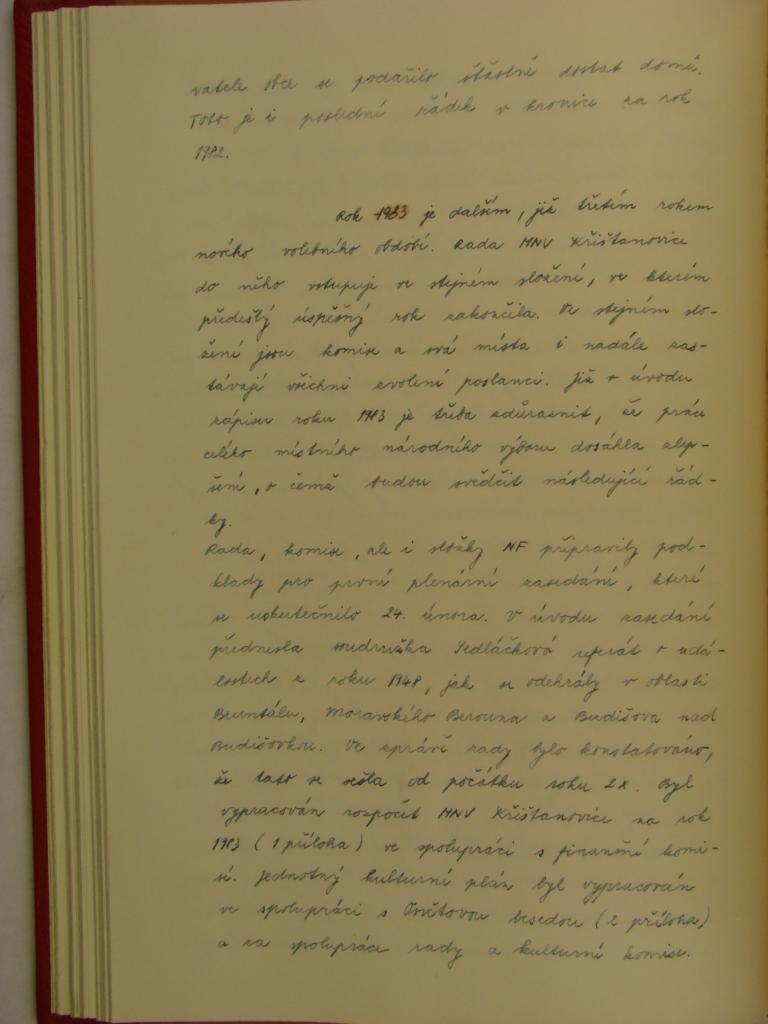 vatele obce se podařilo šťastně dostat domů.
Toto je i poslední řádek v kronice za rok
1982.
Rok 1983 je dalším, již třetím rokem
nového volebního období. Rada MNV Křišťanovice
do něho vstupuje ve stejném složení, ve kterém
předešlý úspěšný rok zakončila. Ve stejném slo-
žení jsou komise a svá místa i nadále zas-
távají všichni zvolení poslanci. Již v úvodu
zápisu roku 1983 je třeba zdůraznit, že práce
celého místního národního výboru dosáhla zlep-
šení, o čemž budou svědčit následující řád-
ky.
Rada, komise, ale i složky NF připravily pod-
klady pro první plenární zasedání, které
se uskutečnilo 24. února. V úvodu zasedání
přednesla soudružka Sedláčková referát o udá-
lostech z roku 1948, jak se odehrály v oblasti
Bruntálu, Moravského Berouna a Budišova nad
Budišovkou. Ve zprávě rady bylo konstatováno,
že tato se sešla od počátku roku 2x. Byl
vypracován rozpočet MNV Křišťanovice na rok
1983 (1 příloha) ve spolupráci s finanční komi-
sí. Jednotný kulturní plán byl vypracován
ve spolupráci s Osvětovou besedou (2 příloha)
a za spolupráce rady a kulturní komise.